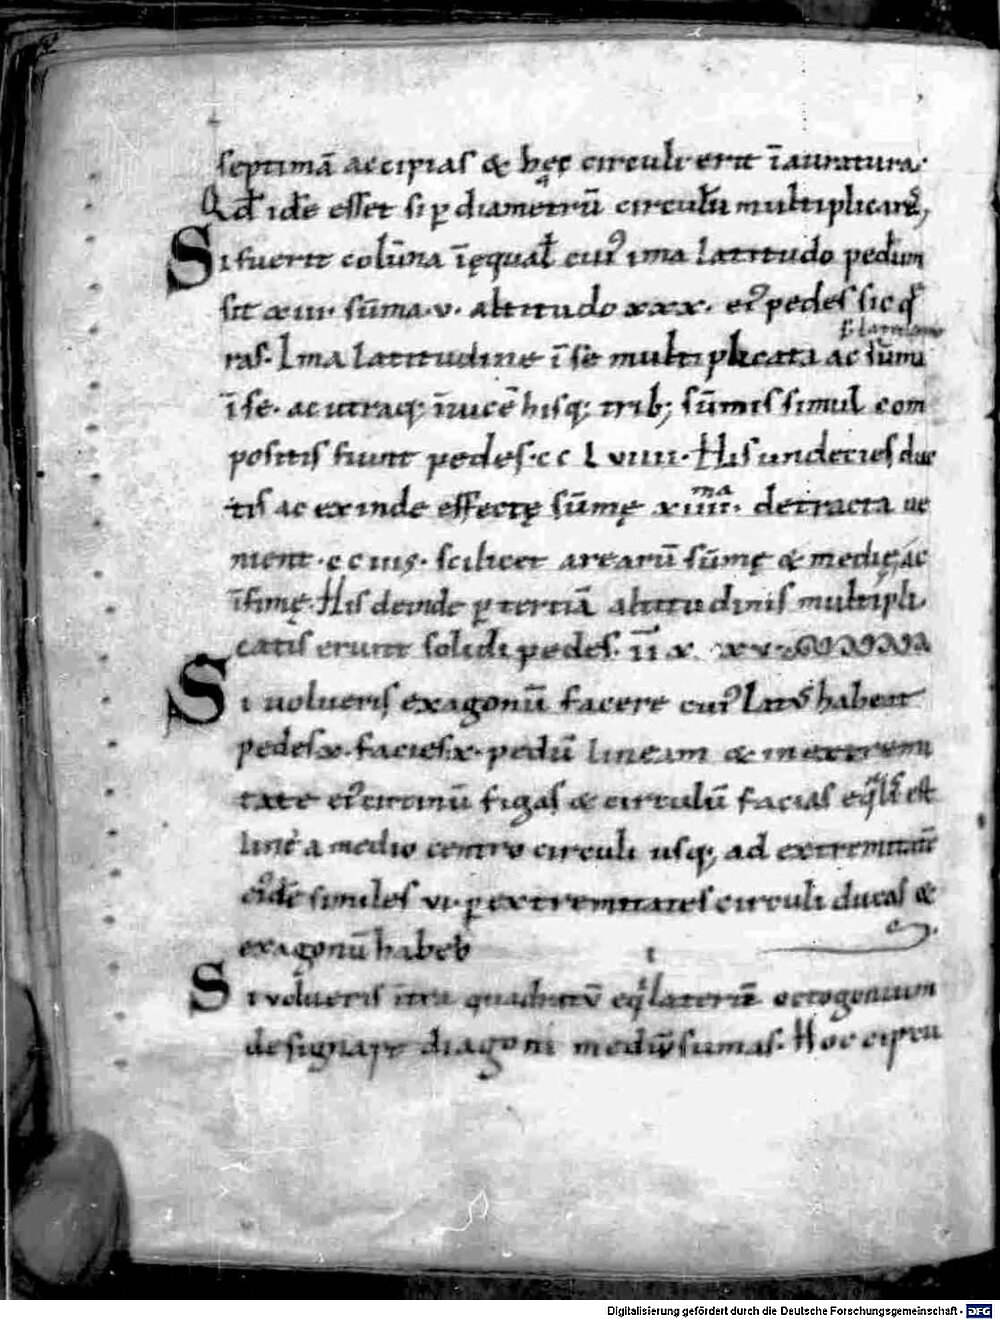 septimā accipias & hęc circuli erit īauratura.
Qđ idē esset si ꝑ diametrū circulū multiplicares,
Si fuerit colūna īęqualꝭ cuiꝰ ima latitudo pedum
sit xiii. sūma. v. altitudo xxx. eiꝰ pedes sic q̄
s. latitudine
ras. Ima latitudine ī sē multiplicata ac sūma
ī sē. ac utraq; īuicē hisq; trib; sūmis simul com
positis fiunt pedes. cc l viiii. His undecies duc
tis ac exinde effectę sūmę xiiii.ᵐᵃ detracta ue
nient. cciiis. scilicet arearū sūmę & medię, ac
īfimę. His deinde ꝑ tertiā altitudinis multipli
catis erunt solidi pedes. īī x. xx
Si uolueris exagonū facere cuiꝰ latꝰ habeat
pedes x. facies x. pedū lineam & in extremi
tate eiꝰ circinū figas & circulū facias eq̄lis est
linea a medio centro circuli usq; ad extremitatē
eiꝰdē similes vi. ꝑ extremitates circuli ducas &
exagonū habeb
Si uolueris intra quadratū eq̄laterū octogonium
designare diagoni mediū sumas. Hoc circu